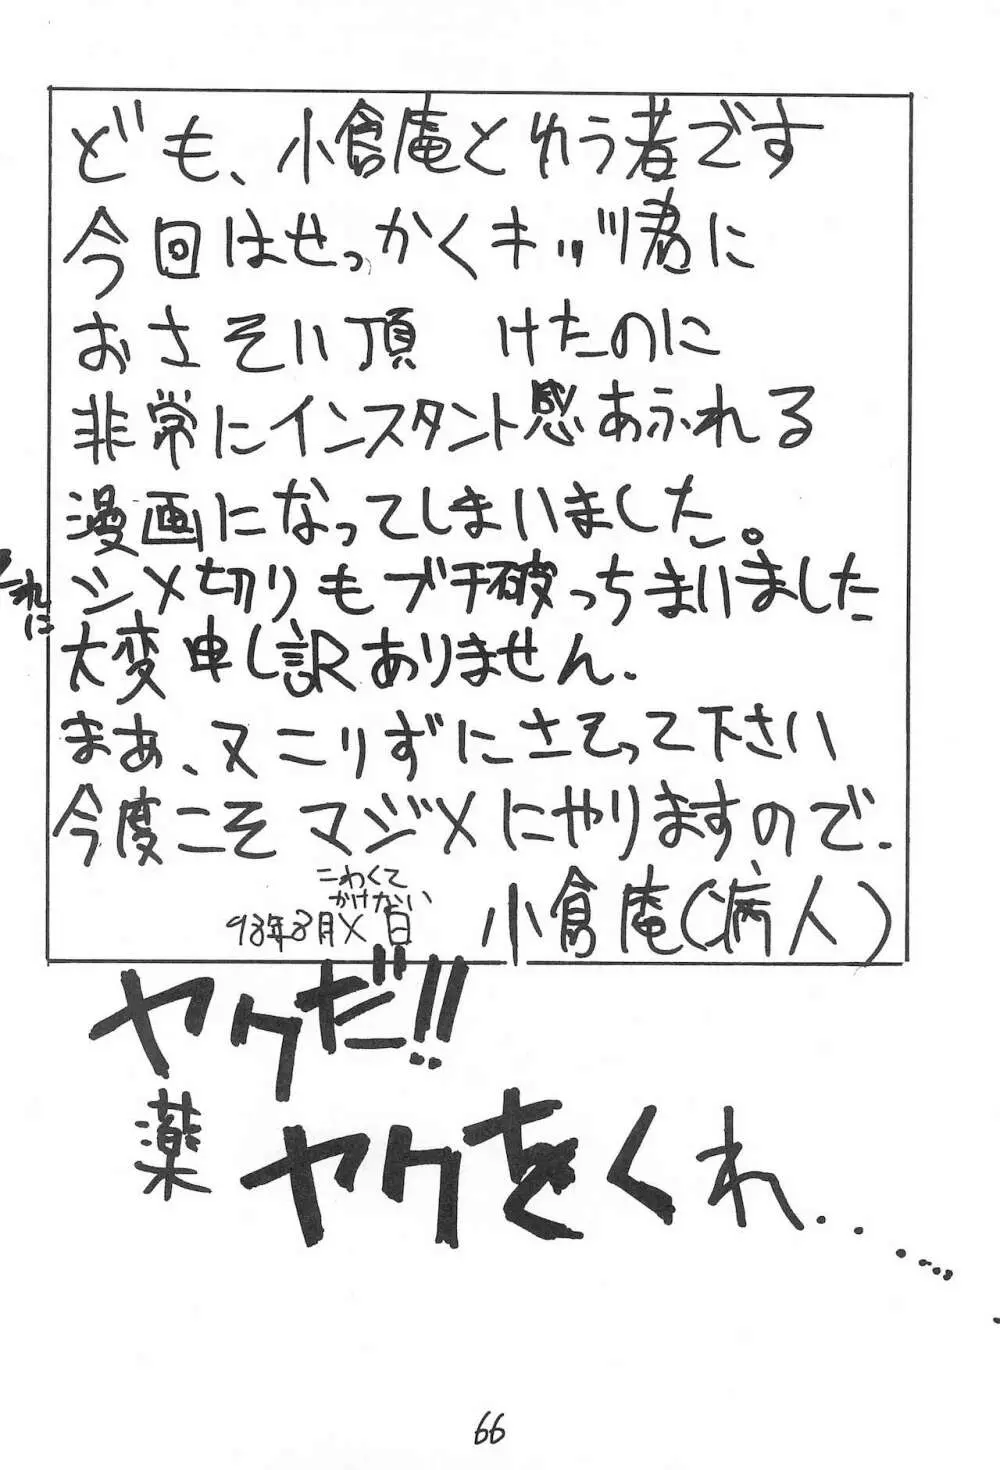 ども、小倉庵とゆう者です
今回はせっかくキッヅ君に
おさそい頂けたのに
非常にインスタント感あふれる
漫画になってしまいました。
それに
シメ切りもブチ破っちまいました
大変申し訳ありません.
まあ、又こりずにさそって下さい
今度こそマジメにやりますので.
こわくて
かけない
93年3月×日
小倉庵(病人)
ヤクだ!!
薬
ヤクをくれ........
66